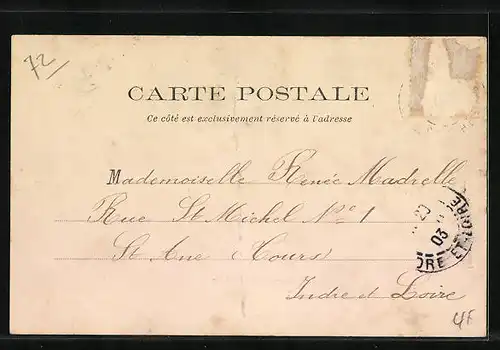 72
CARTE POSTALE
Ce côté est exclusivement réservé à l'adresse
Mademoiselle Renée Madrelle
Rue St Michel No 1
St Ane Tours
Indre et Loire
03
DRE ET LOIRE